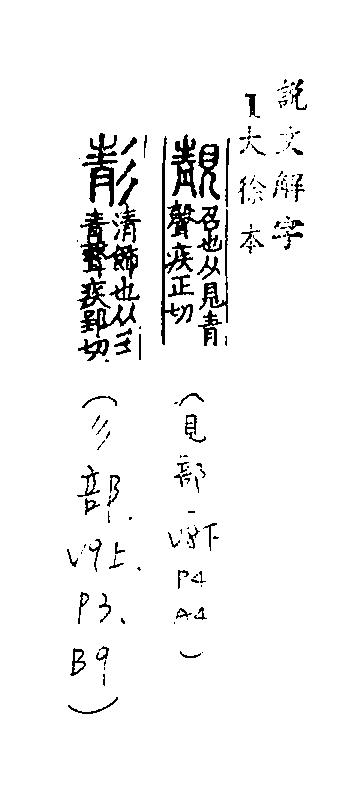 説文解字
大徐本
靚 召也从見青
聲疾正切
(見部
V8下
P4
A4)
彰 清飾也从彡
青聲疾郢切
(彡部.
V9上.
P3.
B9)